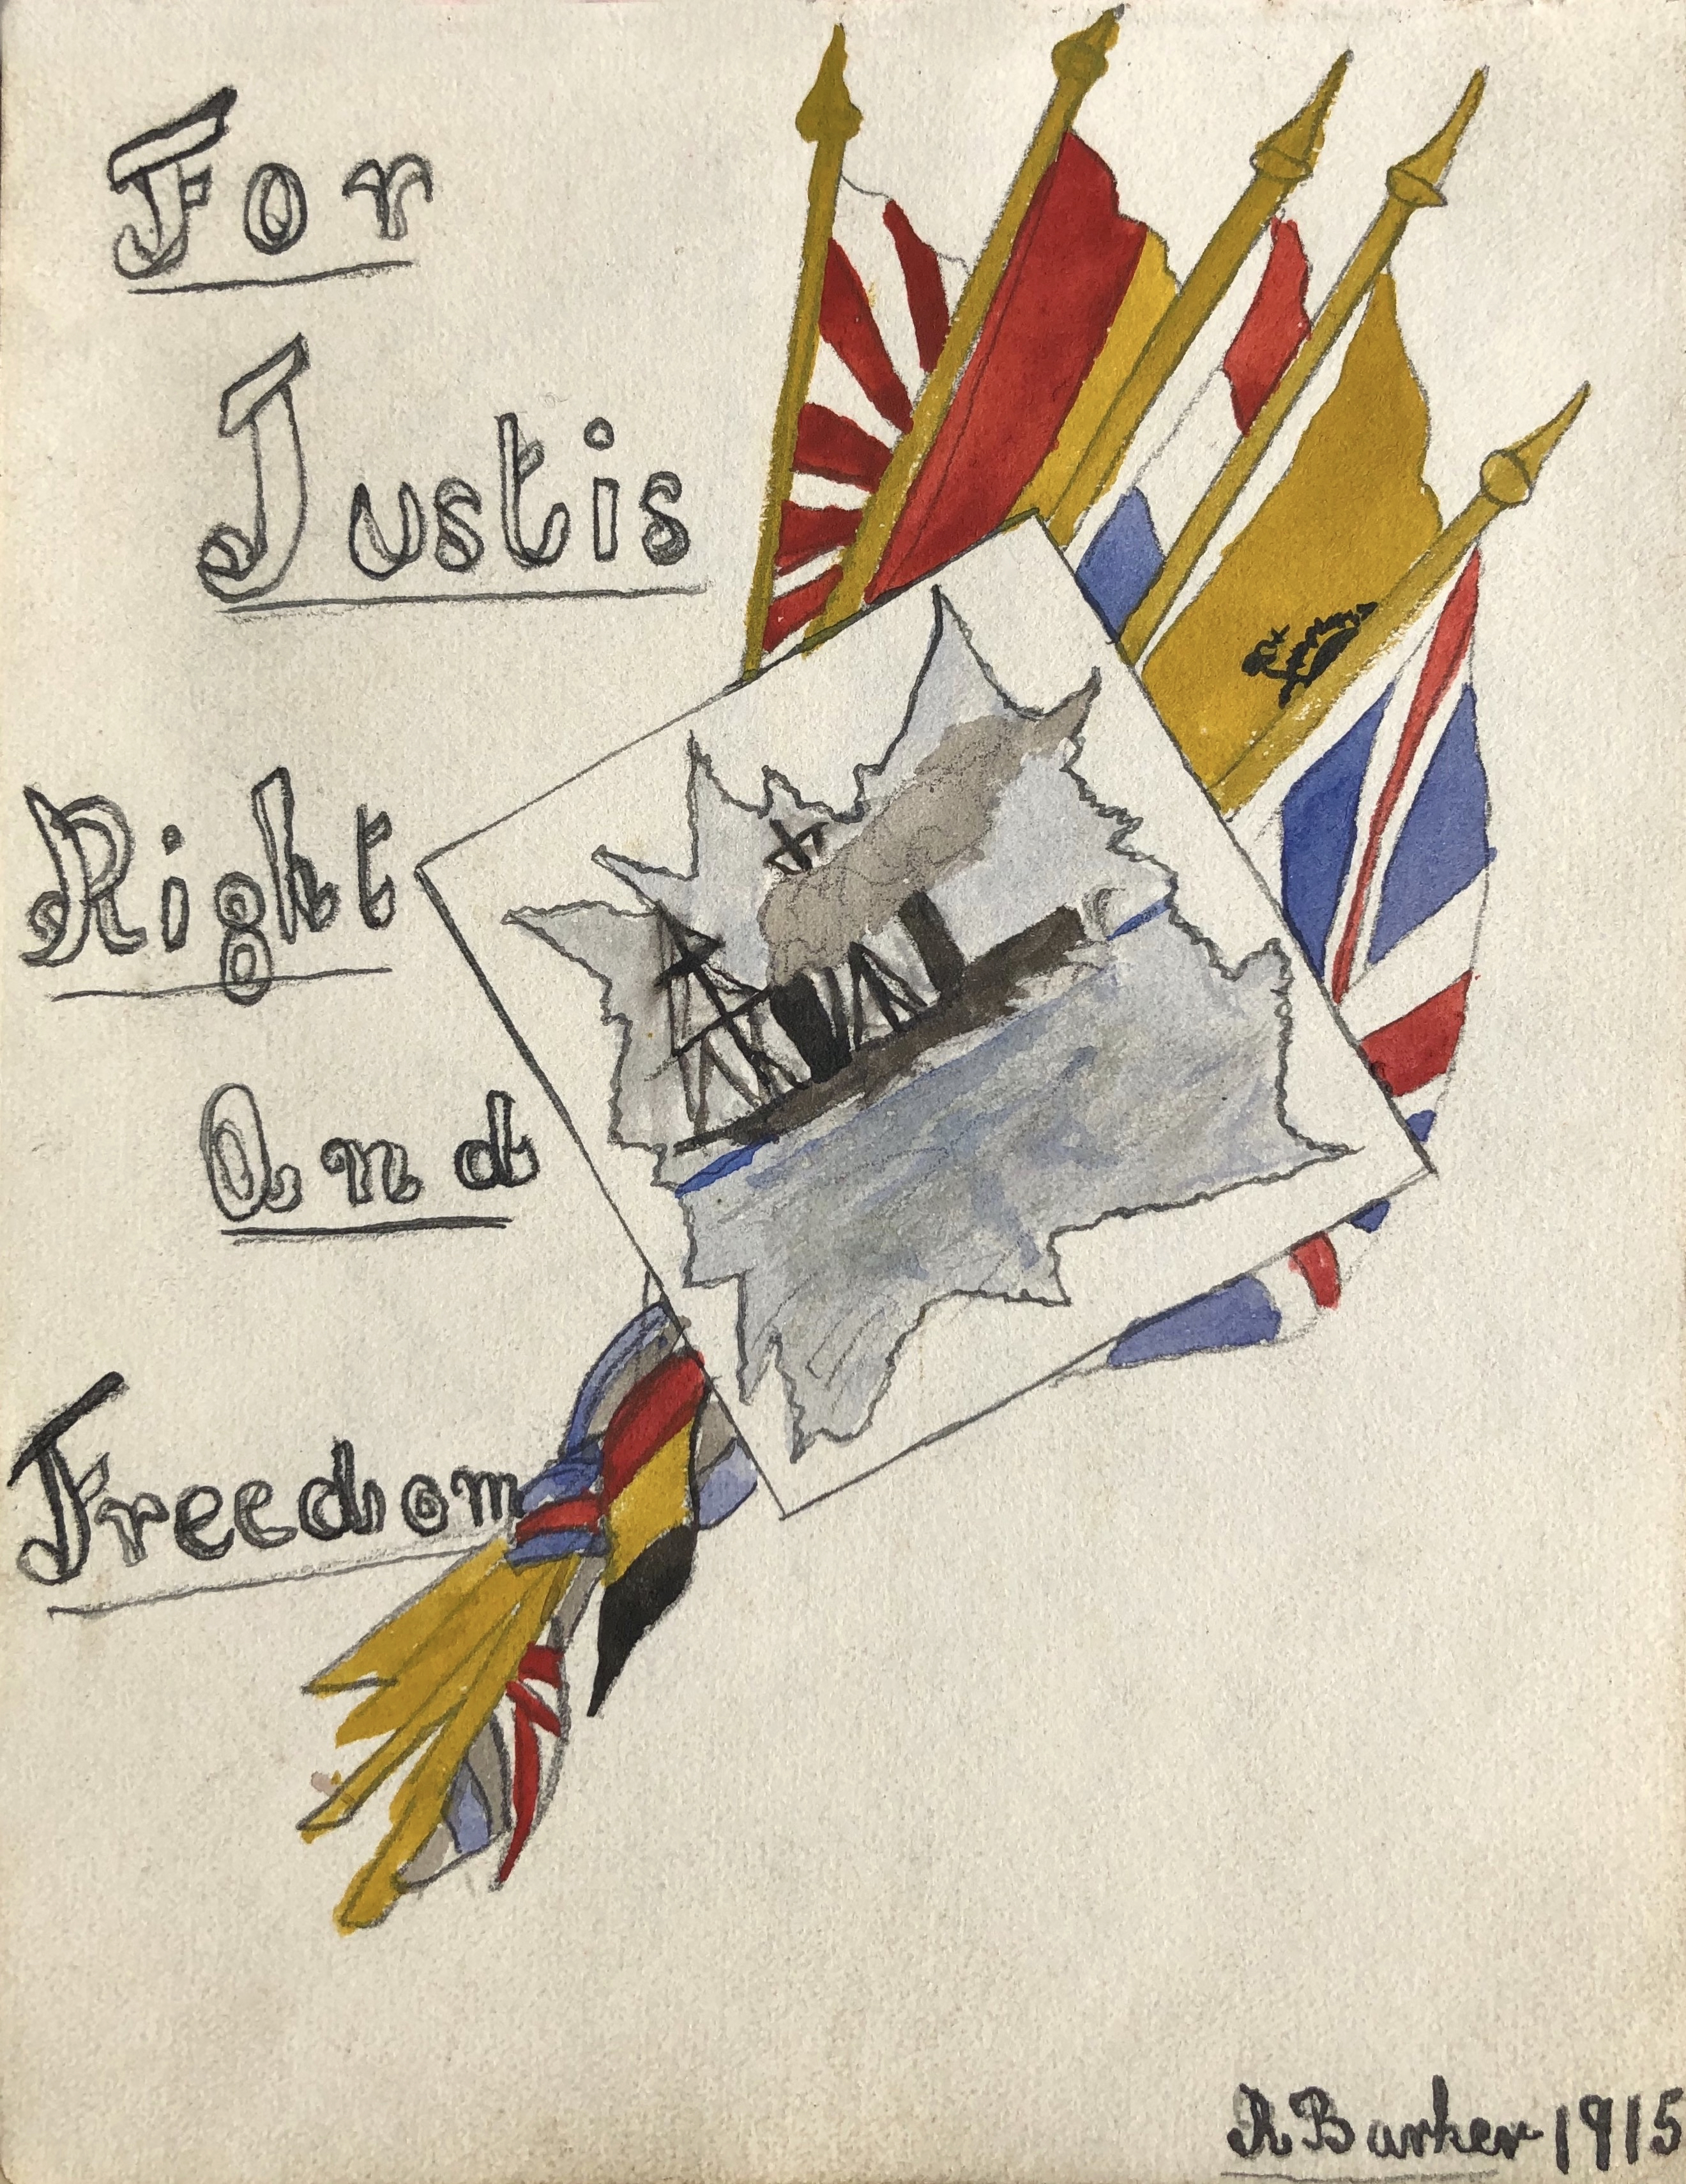 For
Justis
Right
And
Freedom
R Barker 1915